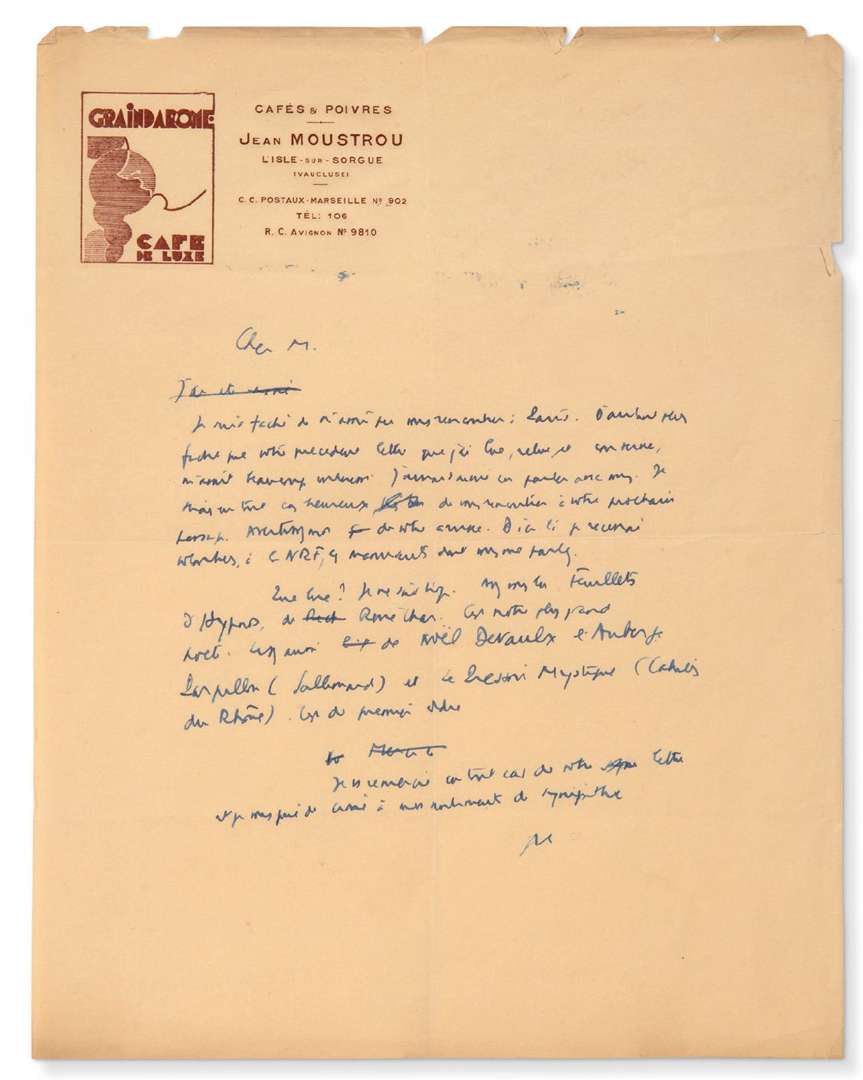 GRAINDAROME
CAFE
DE LUXE
CAFÉS & POIVRES
JEAN MOUSTROU
L'ISLE-SUR-SORGUE
(VAUCLUSE)
C.C. POSTAUX-MARSEILLE Nº 902
TÉL: 106
R.C. AVIGNON Nº 9810
Cher M.
Je suis faché de n'avoir pu vous rencontrer à Paris. D'autant plus
faché que votre précédente lettre que j'ai lue, relue et
m'avait beaucoup intéressé. J'aimerais en parler avec vous. Je
serais en tout cas heureux de vous rencontrer à votre prochain
passage. de votre arrivée. D'ici là je recevrai
volontiers, à la NRF, les manuscrits dont vous me parlez.
Que lire? Je ne sais trop. Feuillets
d'Hypnos, de René Char. C'est notre plus grand
poète. Lisez aussi de Noël Devaulx l'Auberge
Larpillon (Gallimard) et Le Pressoir Mystique (Cahiers
du Rhône). C'est de premier ordre
Je vous remercie en tout cas de votre lettre
et je vous prie de croire à mes sentiments de sympathie